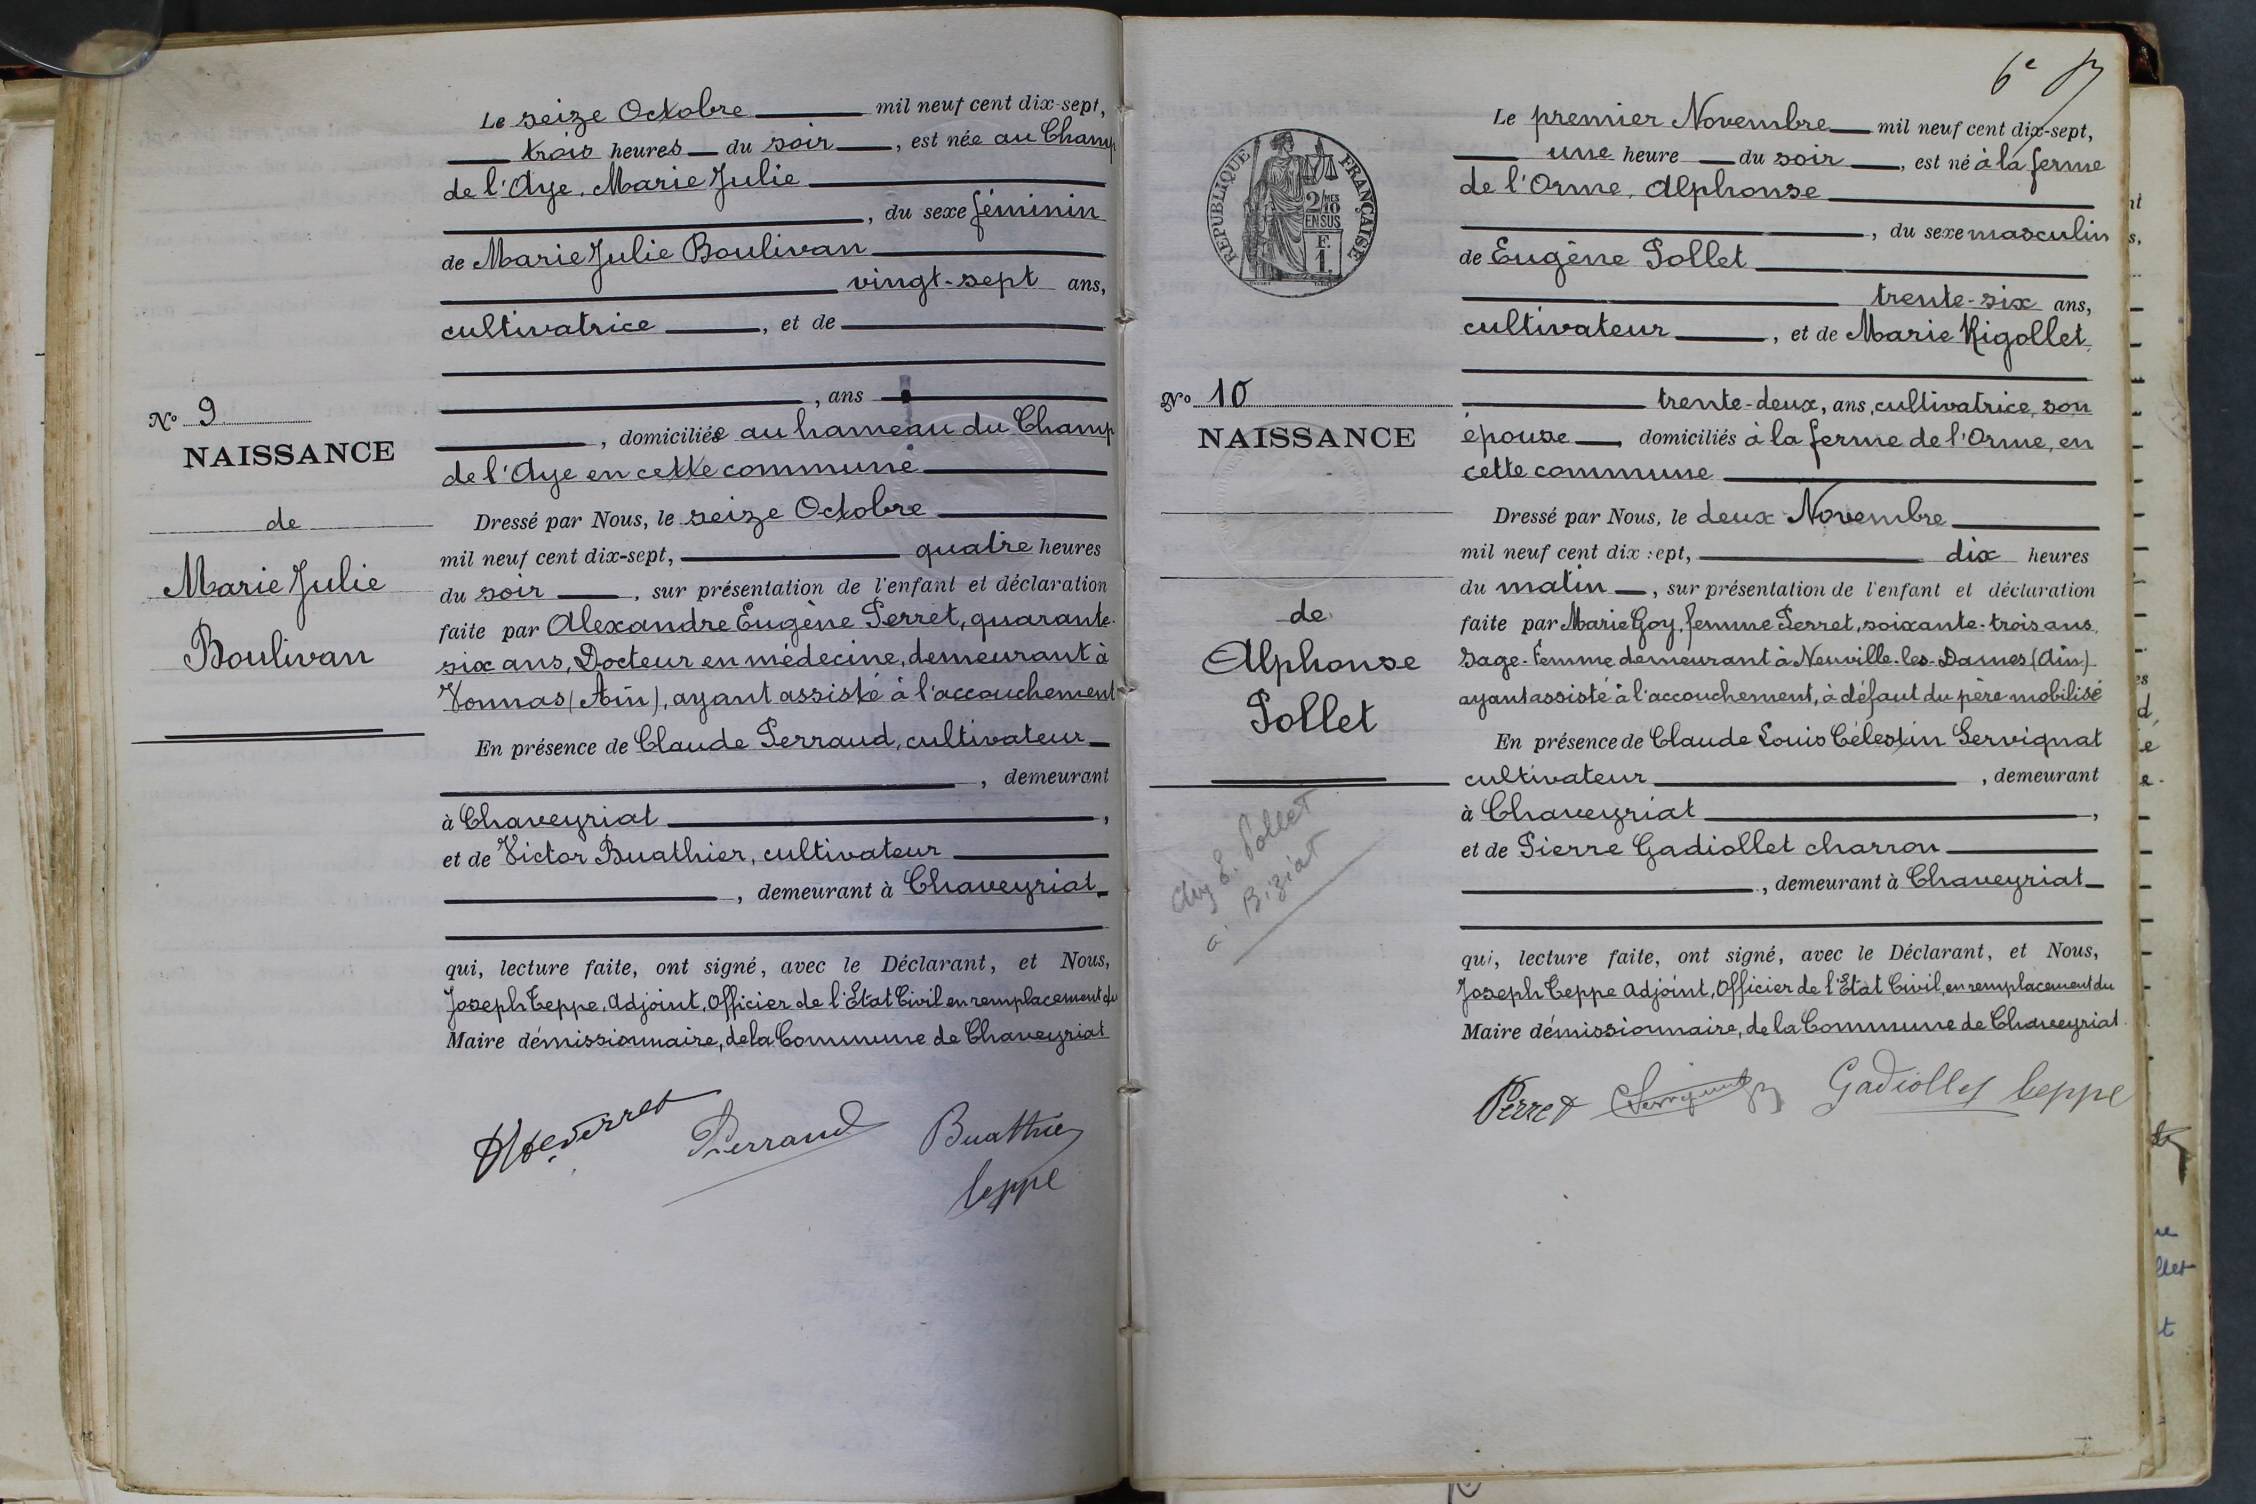 Le seize Octobre mil neuf cent dix-sept,
trois heures du soir, est née au Champ
de l'Aye, Marie Julie
, du sexe féminin
de Marie Julie Boulivan
vingt-sept ans,
cultivatrice, et de
, ans
, domiciliée au hameau du Champ
de l'Aye en cette commune
Dressé par Nous, le seize Octobre
mil neuf cent dix-sept, quatre heures
du soir, sur présentation de l'enfant et déclaration
faite par Alexandre Eugène Perret, quarante-
six ans, Docteur en médecine, demeurant à
Vonnas (Ain), ayant assisté à l'accouchement
En présence de Claude Perraud, cultivateur
, demeurant
à Chaveyriat,
et de Victor Buathier, cultivateur
, demeurant à Chaveyriat
qui, lecture faite, ont signé, avec le Déclarant, et Nous,
Joseph Teppe, Adjoint, Officier de l'Etat Civil en remplacement du
Maire démissionnaire, de la Commune de Chaveyriat
Perraud Buathier
Teppe
N° 9
NAISSANCE
de
Marie Julie
Boulivan
6e
Le premier Novembre mil neuf cent dix-sept,
une heure du soir, est né à la ferme
de l'Orme, Alphonse
, du sexe masculin
de Eugène Pollet
trente-six ans,
cultivateur, et de Marie Rigollet,
trente-deux, ans, cultivatrice, son
épouse, domiciliés à la ferme de l'Orme, en
cette commune
Dressé par Nous, le deux Novembre
mil neuf cent dix sept, dix heures
du matin, sur présentation de l'enfant et déclaration
faite par Marie Goy, femme Perret, soixante-trois ans,
Sage-femme demeurant à Neuville-les-Dames (Ain)
ayant assisté à l'accouchement, à défaut du père mobilisé
En présence de Claude Louis Célestin Servignat
cultivateur, demeurant
à Chaveyriat,
et de Pierre Gadiollet charron
, demeurant à Chaveyriat
qui, lecture faite, ont signé, avec le Déclarant, et Nous,
Joseph Teppe Adjoint, Officier de l'Etat Civil, en remplacement du
Maire démissionnaire, de la Commune de Chaveyriat
Perret Servignat Gadiollet Teppe
REPUBLIQUE FRANÇAISE
2/10 MES
EN SUS
F.
1.
N° 10
NAISSANCE
de
Alphonse
Pollet
chez E. Pollet
à Biziat